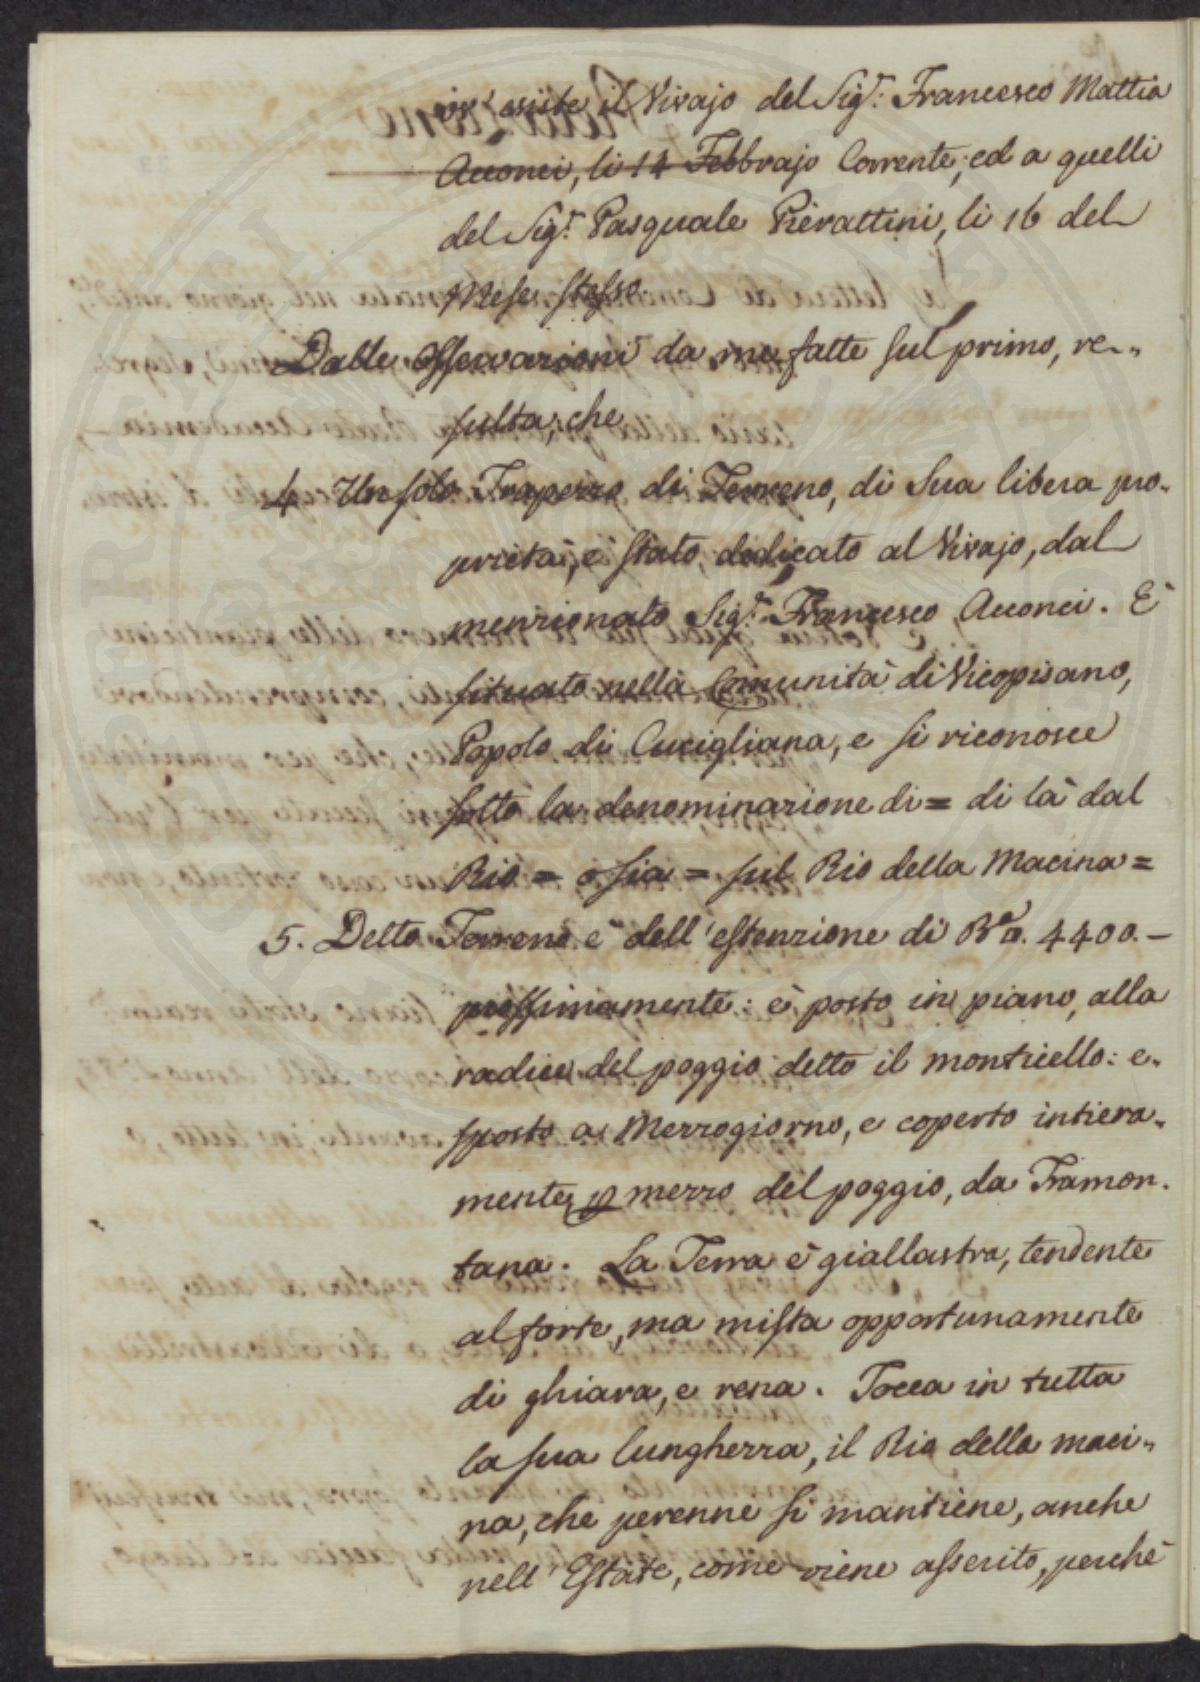 ov' esiste il Vivajo del Sig.r Francesco Mattia
Acconci, li 14 Febbrajo Corrente; ed a quelli
del Sig.r Pasquale Pierattini, li 16 del
Mese stesso.
Dalle osservazioni da me fatte sul primo, re-
sulta, che
4. Un solo Trapezzo di Terreno, di sua libera pro-
prietà, è stato dedicato al Vivajo, dal
menzionato Sig.r Francesco Acconci. È
situato nella Comunità di Vicopisano,
Popolo di Cucigliana, e si riconosce
sotto la denominazione di = di là dal
Rio = o sia = sul Rio della Macina =
5. Detto Terreno è dell'estenzione di Br.a 4400. -
prossimamente: è posto in piano, alla
radice del poggio detto il monticello: e-
sposto a Mezzogiorno, e coperto intiera-
mente, p mezzo del poggio, da Tramon-
tana. La Terra è giallastra, tendente
al forte, ma mista opportunamente
di ghiara, e rena. Tocca in tutta
la sua lunghezza, il Rio della maci-
na, che perenne si mantiene, anche
nell'Estate, come viene asserito, perchè